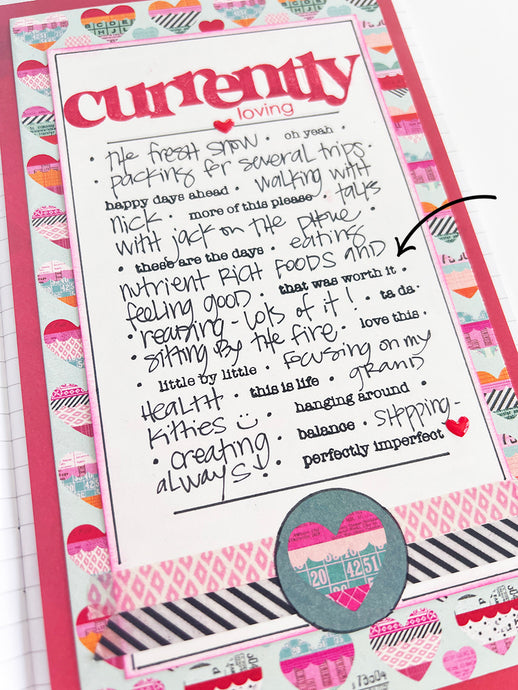 currently
loving
• the fresh snow • oh yeah •
• packing for several trips •
happy days ahead • walking with
nick • more of this please • talks
with jack on the phone •
• these are the days • eating
nutrient rich foods and
feeling good • that was worth it •
• reading - lots of it! • ta da •
• sitting by the fire • love this •
• little by little • focusing on my
health • this is life • grand
kitties • hanging around •
• creating • balance • stepping -
always! • perfectly imperfect
BCDE
HJL
20
42 51
173004